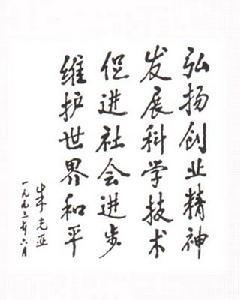 弘扬创业精神
发展科学技术
促进社会进步
维护世界和平
朱光亚
一九九三年六月